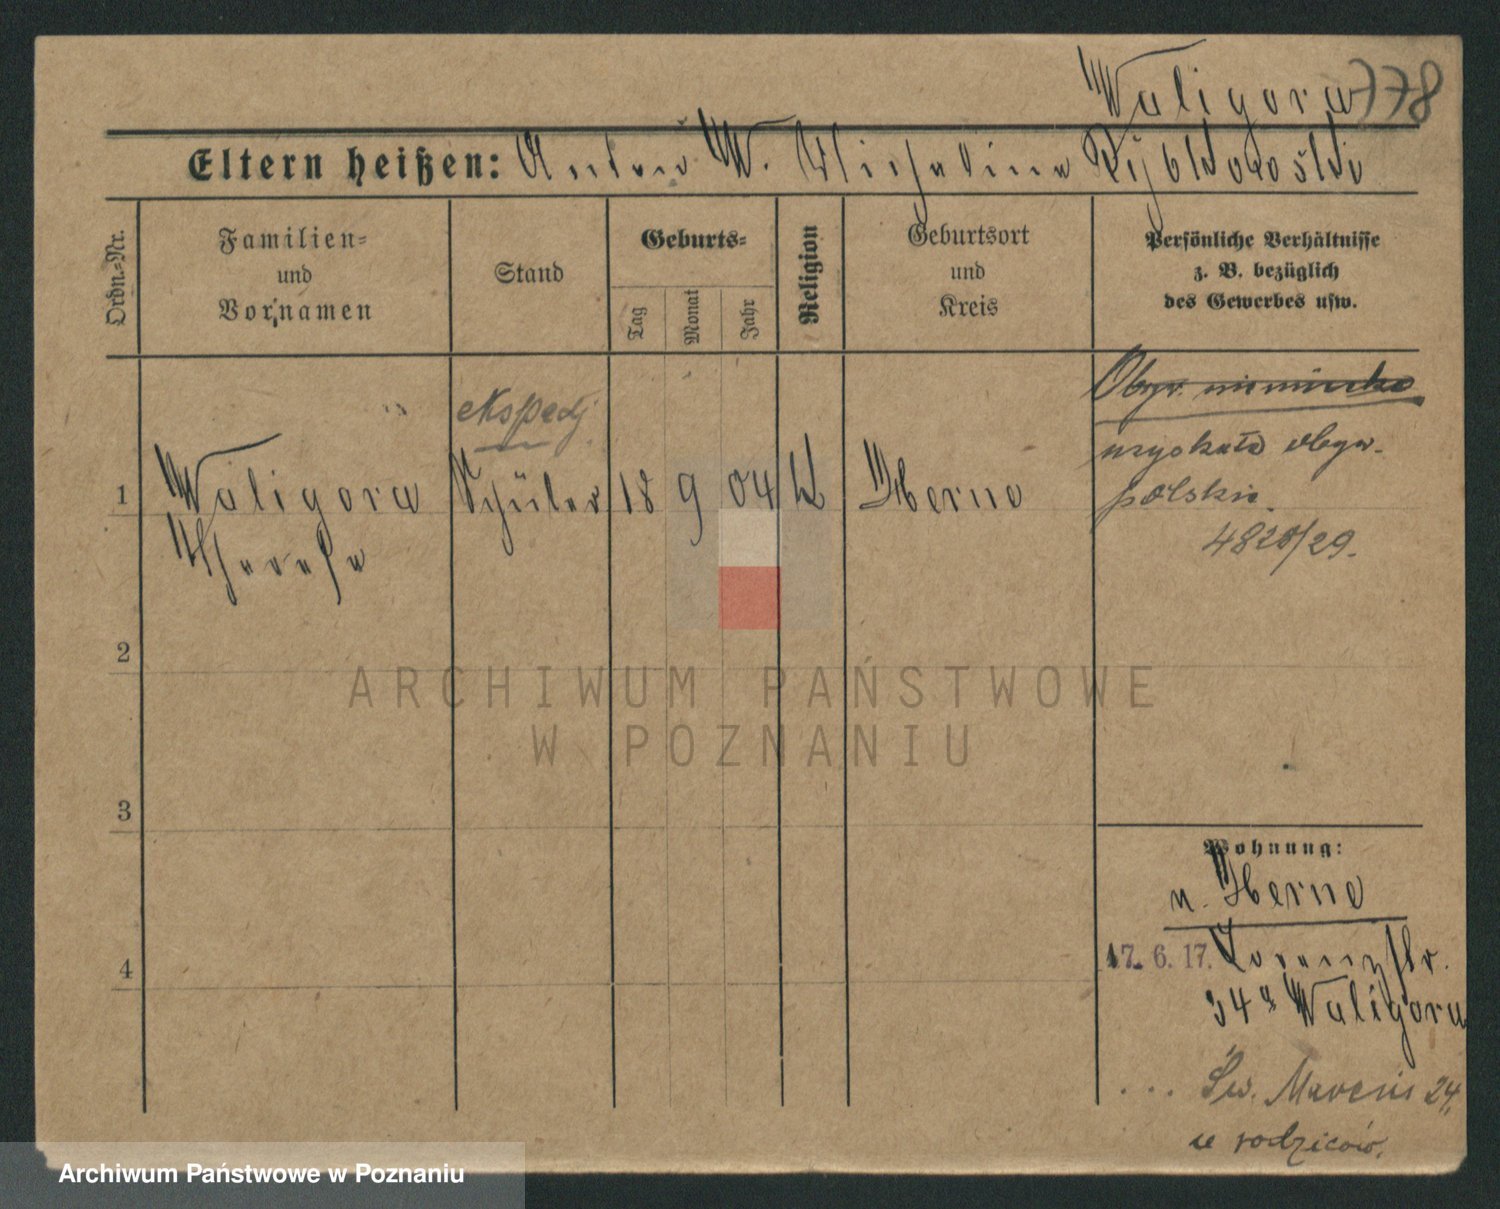 Waligora 778
Eltern heißen: Anton W. Michalina
Ordn.=Nr.
Familien=
und
Vornamen
Stand
Geburts=
Tag
Monat
Jahr
Religion
Geburtsort
und
Kreis
Persönliche Verhältnisse
z. B. bezüglich
des Gewerbes usw.
ekspedj.
Obyw. niemieckie
uzyskała obyw.
polskie.
4828/29.
1 Waligora Schüler 18 9 04 k Herne
Theresa
2
3
4
Wohnung:
n. Herne
17. 6. 17. Lorenzstr.
34a Waligora
... Św. Marcin 24.
u rodziców.
ARCHIWUM PAŃSTWOWE
W POZNANIU
Archiwum Państwowe w Poznaniu